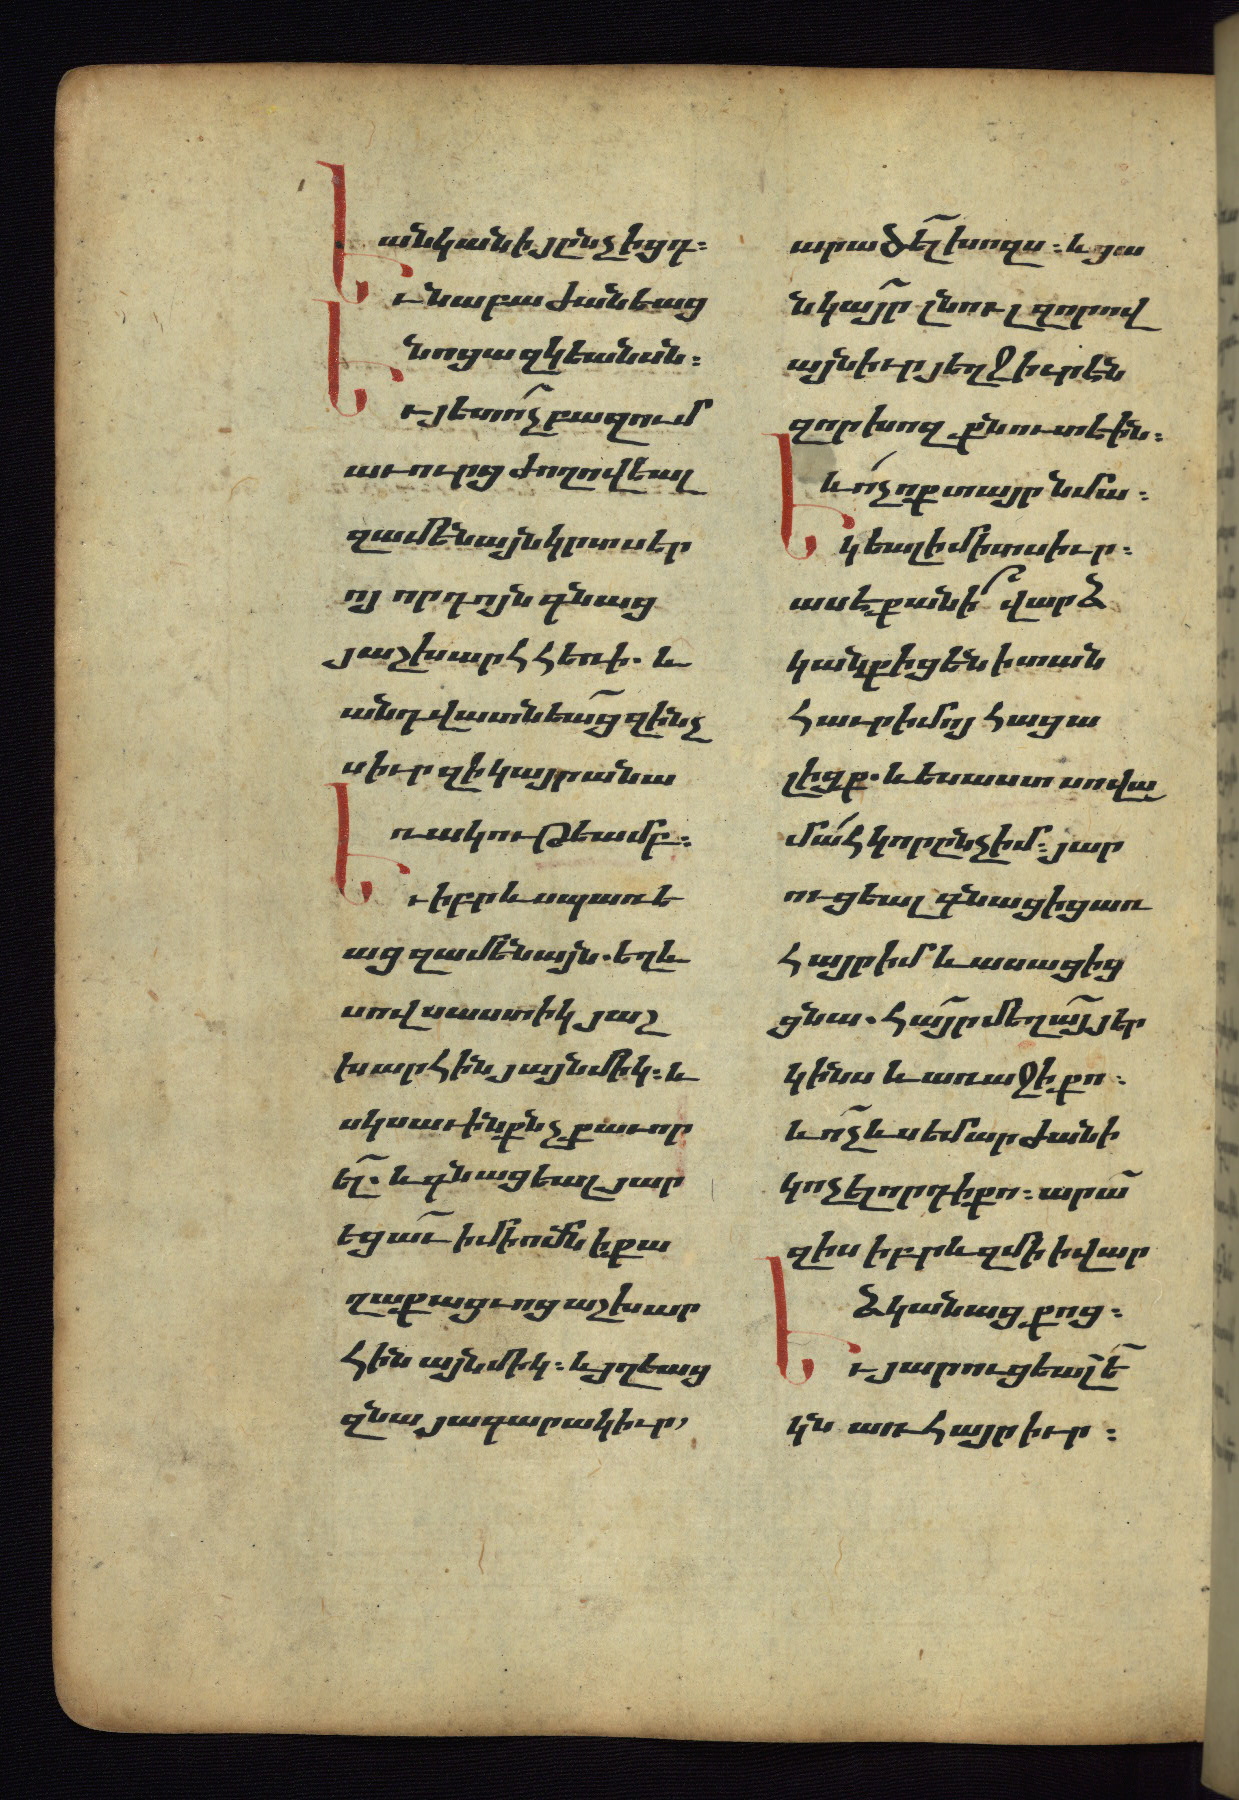 անկանի յընչիցդ։
Եւ նա բաժանեաց
նոցա զկեանսն։
Եւ յետ ոչ բազում
աւուրց ժողովեալ
զամենայն կրտսեր
ոյ որդոյն գնաց
յաշխարհ հեռի. և
անդ վատնեաց զինչս
սիւր զի կայր անա
ռակութեամբ։
Եւ իբրև սպառե
աց զամենայն. եղև
սով սաստիկ յաշ
խարհին յայնմիկ։ և
սկսաւ ինքն չքաւոր
ել. և գնացեալ յար
եցաւ ի մի ոմն ի քա
ղաքացւոց աշխար
հին այնմիկ։ և յղեաց
զնա յագարակ իւր՝
արածել խոզս։ և ցա
նկայր լնուլ զորով
այն իւր յեղջիւրէն
զոր խոզքն ուտէին։
և ոչ ոք տայր նմա։
Եկեալ ի միտս իւր։
ասէ քանի՞ վարձ
կանք իցեն ի տան
հաւր իմոյ հացա
լիցք. և ես աստ սովա
մահ կորընչիմ։ յար
ուցեալ գնացից առ
հայր իմ և ասացից
ցնա. հայր մեղայ յեր
կինս և առաջի քո։
և ոչ ևս եմ արժանի
կոչել որդի քո։ արա
զիս իբրև զմի ի վար
ձկանաց քոց։
Եւ յարուցեալ ե
կն առ հայր իւր։